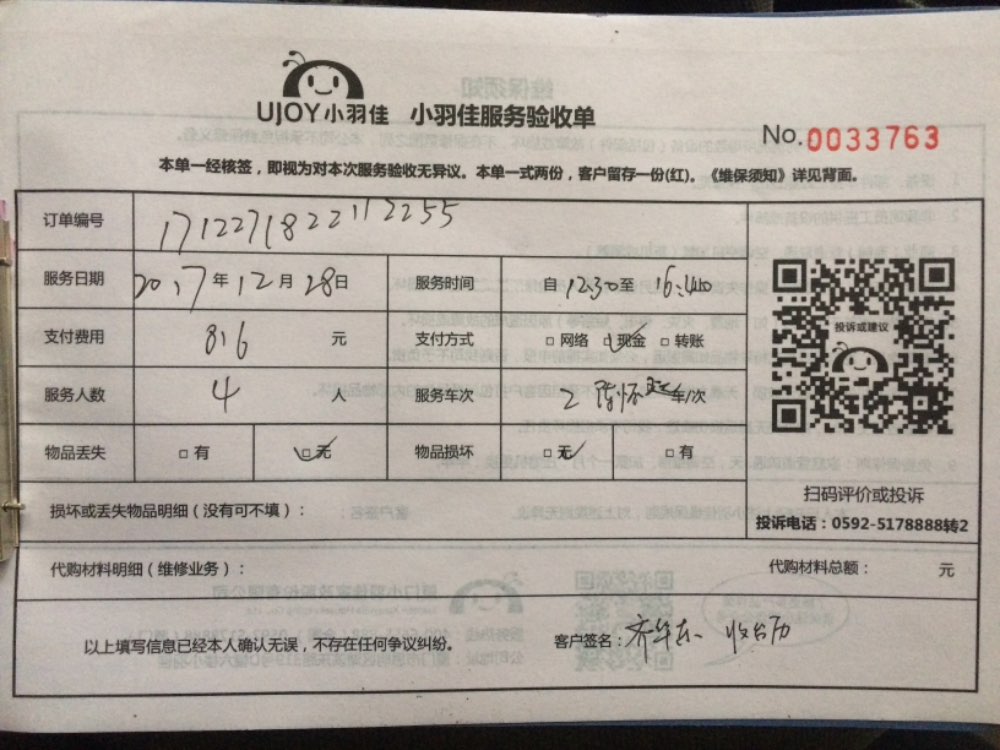 UJOY小羽佳 小羽佳服务验收单
No.0033763
本单一经核签，即视为对本次服务验收无异议。本单一式两份，客户留存一份(红)。《维保须知》详见背面。
订单编号 1712271822112255
服务日期 2017年12月28日 服务时间 自12:30至16:40
投诉或建议
支付费用 816 元 支付方式 □网络 □现金 □转账
服务人数 4 人 服务车次 2 车/次
物品丢失 □有 □无 物品损坏 □无 □有
扫码评价或投诉
损坏或丢失物品明细（没有可不填）：
投诉电话：0592-5178888转2
代购材料明细（维修业务）： 代购材料总额： 元
以上填写信息已经本人确认无误，不存在任何争议纠纷。 客户签名：